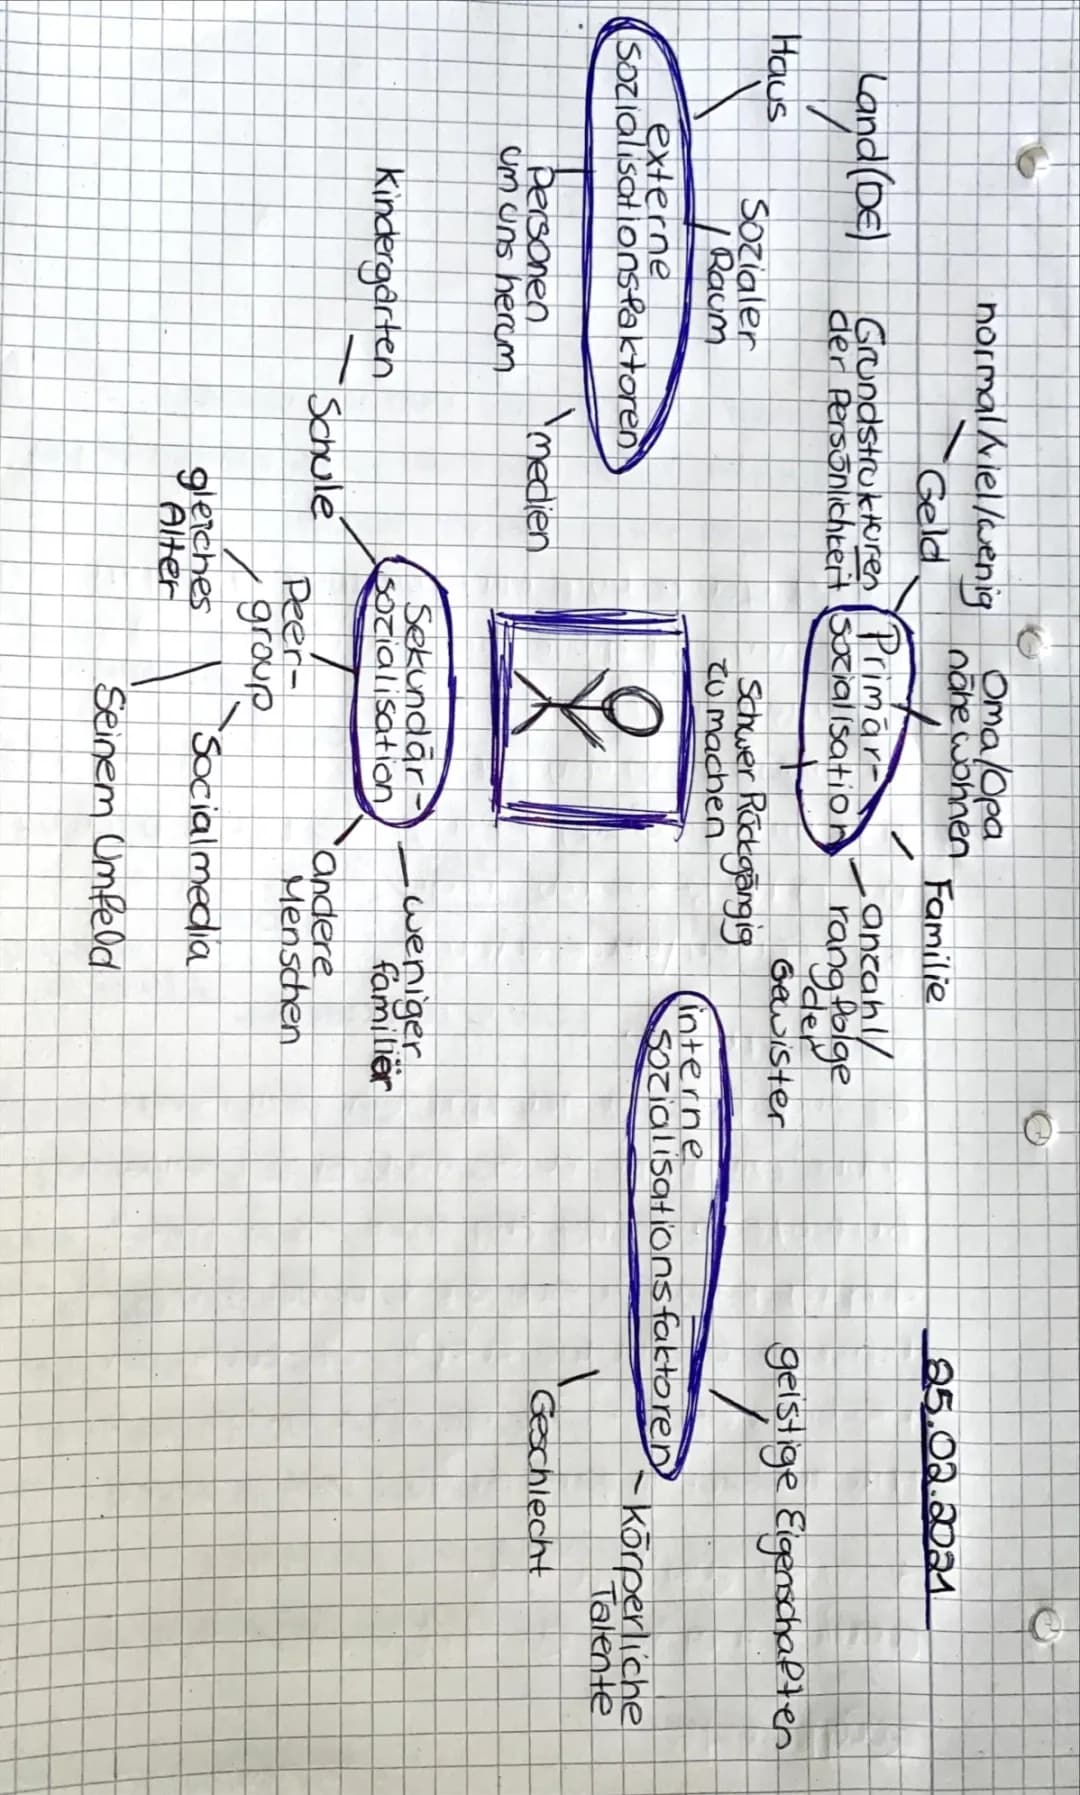 25.02.2021
normal/viel/wenig
Geld
Oma/Opa
nähe wohnen
Familie
Land(DE)
Haus
Grundstrukturen
der Persönlichkeit
Primär-
sozialisation
anzahl/
rangfolge
der
Gewister
Sozialer
Raum
Schwer Rückgängig
zu machen
externe
sozialisationsfaktoren
Personen
um uns herum
medien
interne
sozialisationsfaktoren
geistige Eigenschaften
Körperliche
Talente
Geschlecht
Sekundär-
sozialisation
weniger
familiär
Kindergarten
Schule
Peer-
group
andere
Menschen
gleiches
Alter
Socialmedia
Seinem Umfeld